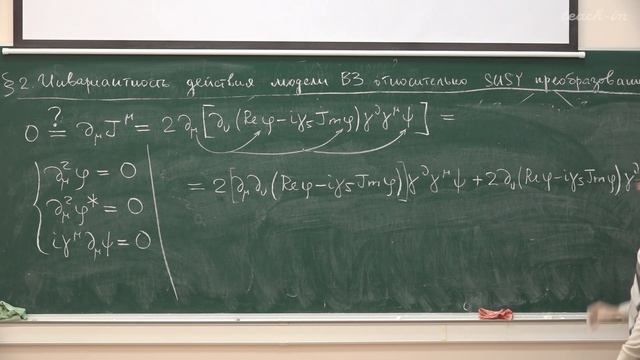 teach-in
§2. Инвариантность действия модели ВЗ относительно SUSY преобразовани
0 ≟ ∂_μ J^μ = 2∂_μ [∂_ν (Reφ - iγ_5 Jmφ) γ^ν γ^μ ψ] =
∂_μ^2 φ = 0
∂_μ^2 φ* = 0
iγ^μ ∂_μ ψ = 0
= 2 [∂_μ ∂_ν (Reφ - iγ_5 Jmφ)] γ^ν γ^μ ψ + 2∂_ν (Reφ - iγ_5 Jmφ) γ^ν